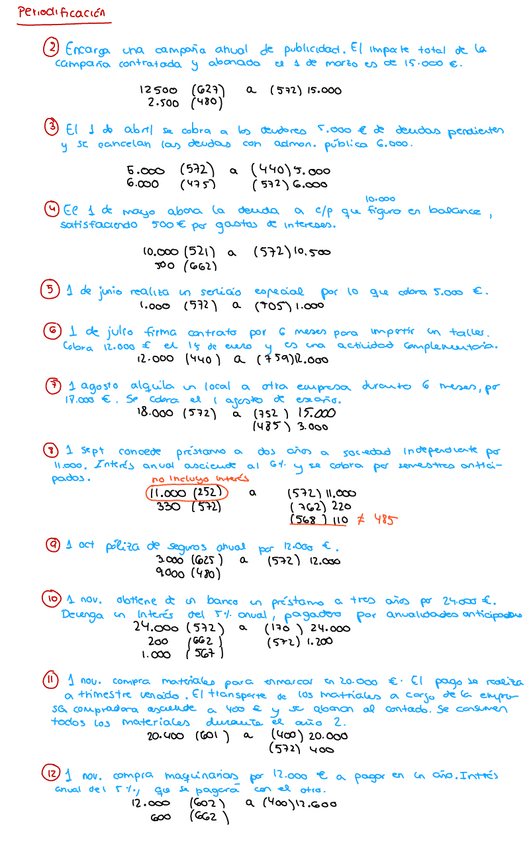 Periodificación
② Encarga una campaña anual de publicidad. El importe total de la
campaña contratada y abonada el 1 de marzo es de 15.000 €.
12500 (627) a (572) 15.000
2.500 (480)
③ El 1 de abril se cobra a los deudores 5.000 € de deudas pendientes
y se cancelan las deudas con admon. pública 6.000.
5.000 (572) a (440) 5.000
6.000 (475) (572) 6.000
10.000
④ El 1 de mayo abona la deuda a c/p que figura en balance,
satisfaciendo 500 € por gastos de intereses.
10.000 (521) a (572) 10.500
500 (662)
⑤ 1 de junio realiza un servicio especial por lo que cobra 5.000 €.
1.000 (572) a (705) 1.000
⑥ 1 de julio firma contrato por 6 meses para impartir un taller.
Cobra 12.000 € el 15 de enero y es una actividad complementaria.
12.000 (440) a (759) 12.000
⑦ 1 agosto alquila un local a otra empresa durante 6 meses, por
18.000 €. Se cobra el 1 agosto de
18.000 (572) a (752) 15.000
(485) 3.000
⑧ 1 sept concede préstamo a dos años a sociedad independiente por
11.000. Interés anual asciende al 6% y se cobra por semestres antici-
pados.
no incluyo interés
11.000 (252) a (572) 11.000
330 (572) (762) 220
(568) 110 ≠ 485
⑨ 1 oct póliza de seguros anual por 12.000 €.
3.000 (625) a (572) 12.000
9.000 (480)
⑩ 1 nov. obtiene de un banco un préstamo a tres años por 24.000 €.
Devenga un interés del 5% anual, pagadero por anualidades anticipadas
24.000 (572) a (170) 24.000
200 (662) (572) 1.200
1.000 (567)
⑪ 1 nov. compra materiales para enmarcar en 20.000 €. El pago se realiza
a trimestre vencido. El transporte de los matriales a cargo de la empre-
sa compradora asciende a 400 € y se abonan al contado. Se consumen
todos los materiales durante el año 2.
20.400 (601) a (400) 20.000
(572) 400
⑫ 1 nov. compra maquinarias por 12.000 € a pagar en un año. Intrés
anual del 5%, que se pagará con el otro.
12.000 (602) a (400) 12.600
600 (662)